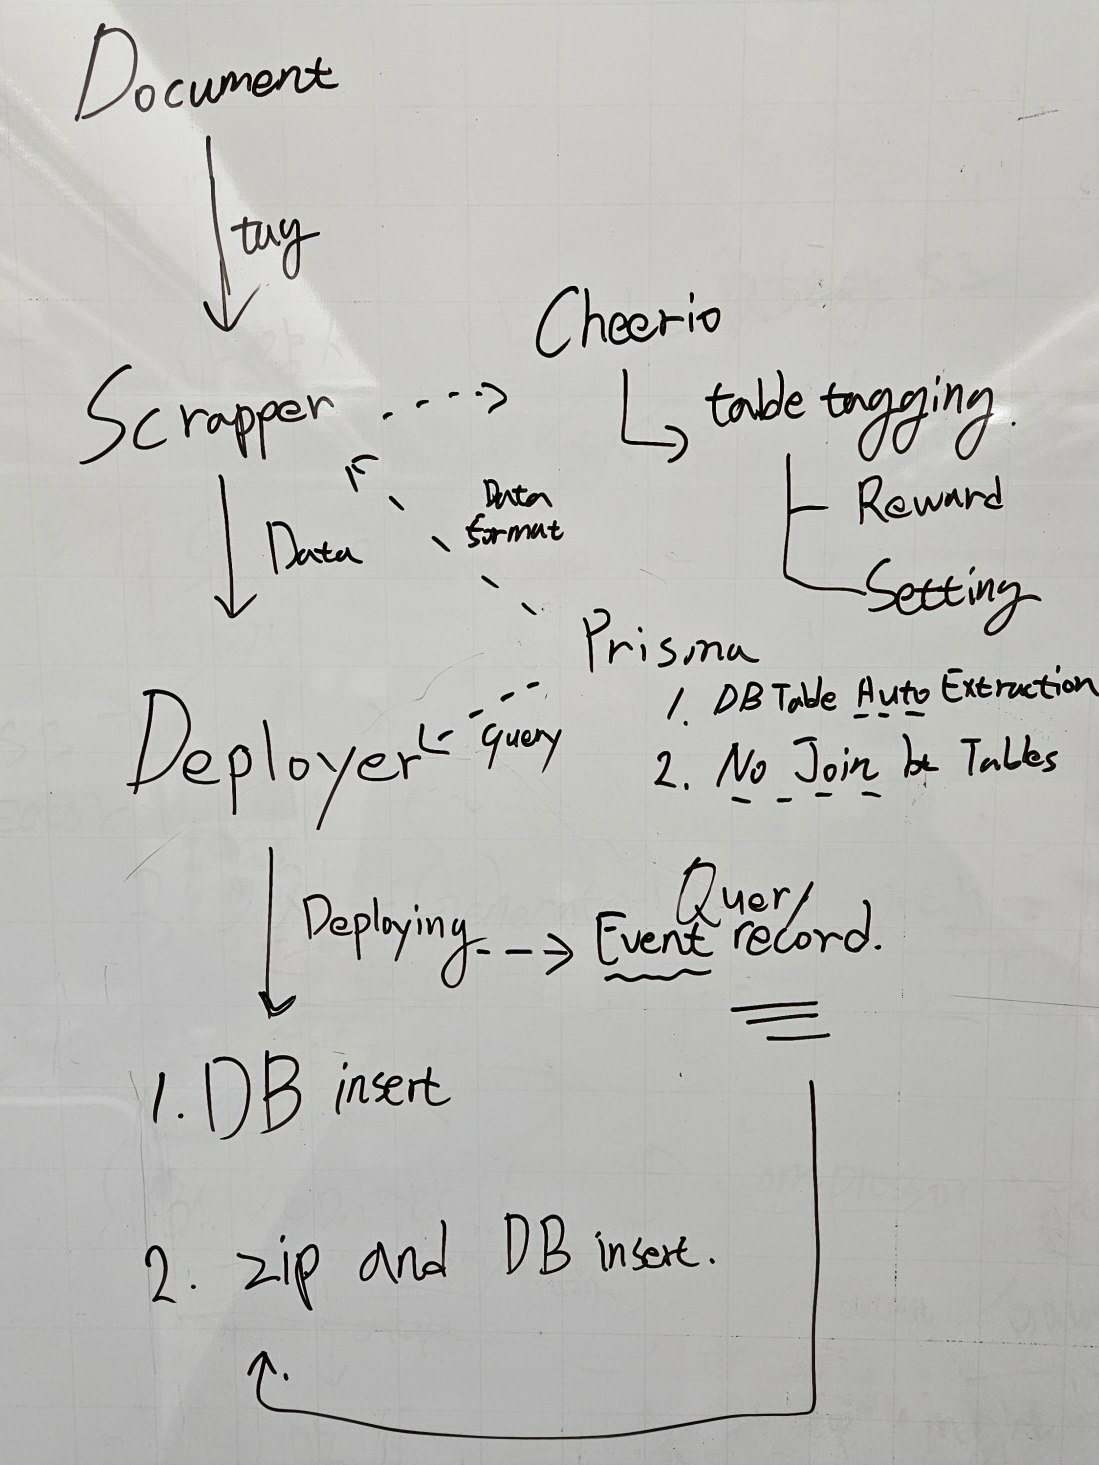 Document
tag
Cheerio
Scrapper
table tagging.
Reward
Data
format
Data
Setting
Prisma
1. DB Table Auto Extraction
Deployer
Query
2. No Join Tables
Query
Deploying
Event record.
1. DB insert
2. zip and DB insert.